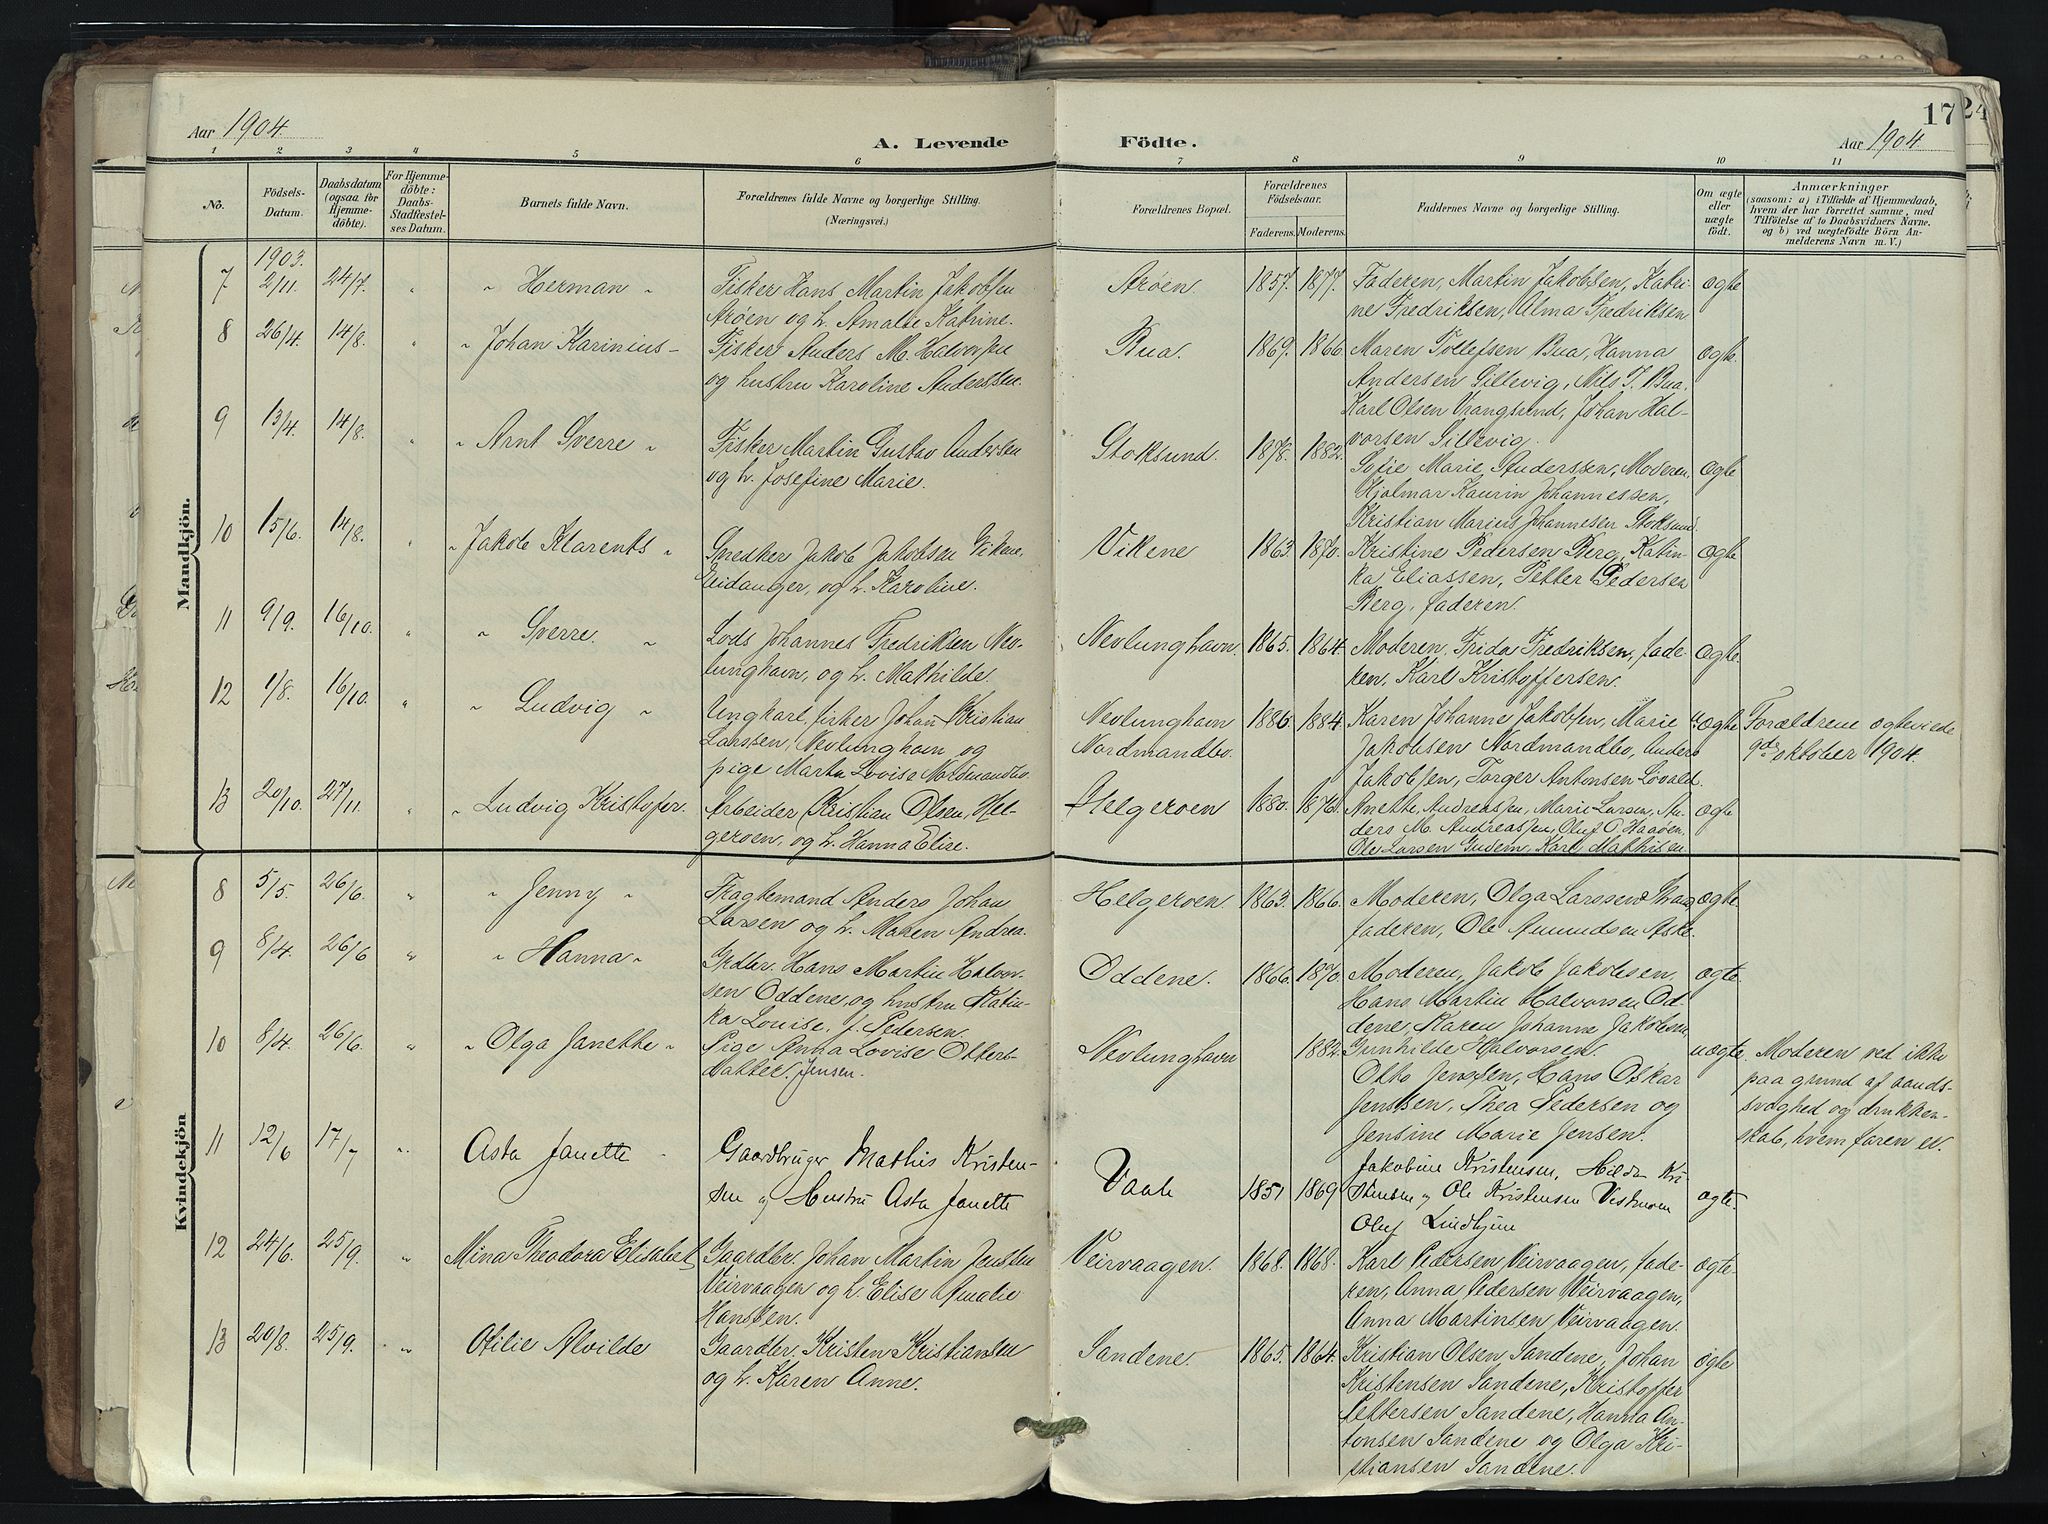 Aar 1904.
A. Levende
Födte.
17
24
Aar 1904.
1 2 3 4 5 6 7 8 9 10 11
No.
Födsels-
Datum.
Daabsdatum
(ogsaa for
Hjemme-
döbte).
For Hjemme-
döbte:
Daabs-
Stadfæstel-
ses Datum.
Barnets fulde Navn.
Forældrenes fulde Navne og borgerlige Stilling.
(Næringsvei.)
Forældrenes Bopæl.
Forældrenes
Födselsaar.
Faderens. Moderens.
Faddernes Navne og borgerlige Stilling.
Om ægte
eller
uægte
födt.
Anmærkninger
(saasom: a) i Tilfælde af Hjemmedaab,
hvem der har forrettet samme, med
Tilföielse af to Daabsvidners Navne.
og b) ved uægtefödte Börn An-
melderens Navn m. V.)
Mandkjön.
1903.
7 2/11. 24/7. " " Herman "
Fisker Hans Martin Jakobsen
Arøen og h. Amalie Katrine.
Arøen. 1857. 1877.
Faderen, Martin Jakobsen, Katri-
ne Fredriksen, Alma Fredriksen
ægte
8 26/4. 14/8. " " Johan Karinius -
Fisker Anders M. Halvorsen
og hustru Karoline Anderssen.
Bua. 1869. 1866.
Maren Tollefsen Bua, Hanna
Andersen Sillevig, Nils T. Bua.
Karl Olsen Vrangsund, Johan Hal-
vorsen Sillevig.
ægte.
9 13/4. 14/8. " " Arnt Sverre "
Fisker Martin Gustav Andersen
og h. Josefine Marie.
Stoksund. 1878. 1882.
Sofie Marie Anderssen, Moderen,
Hjalmar Kaurin Johannessen,
Kristian Marius Johannesen Stoksund.
ægte
10 15/6. 14/8. " " Jakob Klarents "
Snedker Jakob Jakobsen Vikene,
Eidanger, og h. Karoline.
Vikene 1863 1870.
Kristine Pedersen Berg, Katin-
ka Eliassen, Petter Pedersen
Berg, faderen.
ægte
11 9/9. 16/10. " " Sverre. "
Lods Johannes Fredriksen Nev-
lunghavn, og h. Mathilde.
Nevlunghavn. 1865. 1864.
Moderen, Frida Fredriksen, fade-
ren, Karl Kristoffersen.
ægte.
12 1/8. 16/10. " " Ludvig "
Ungkarl, fisker Johan Kristian
Larssen, Nevlunghavn og
pige Marta Lovise Nordmandbo.
Nevlunghavn
Nordmandbo.
1886. 1884.
Karen Johanne Jakobsen, Marie
Jakobsen Nordmandbo, Anders
Jakobsen, Torger Antonsen Løvald.
uægte
Forældrene ægteviede
9de oktober 1904.
13 20/10. 27/11. " " Ludvig Kristofer.
Arbeider Kristian Olsen, Hel-
geroen, og h. Hanna Elise.
Helgeroen 1880. 1876.
Anethe Andreassen, Marie Larsen, An-
ders M. Andreassen, Oluf O. Haaøen,
Ole Larsen Gusein, Karl Mathisen
ægte
Kvindekjön
8 5/5. 26/6. " " Jenny "
Fragtemand Anders Johan
Larsen og h. Maren Andrea.
Helgeroen. 1863. 1866.
Moderen, Olga Larssen
faderen, Ole Amundsen Aske.
ægte
9 8/4. 26/6 " " Hanna "
Grdbr. Hans Martin Halvor-
sen Oddene, og hustru Katin-
ka Louise, f. Pedersen.
Oddene. 1866. 1870.
Moderen, Jakob Jakobsen,
Hans Martin Halvorsen Od-
dene, Karen Johanne Jakobsen,
Gunhilde Halvorsen.
ægte.
10 8/4. 26/6. " " Olga Janethe "
Pige Anna Lovise Otters-
datter. Jensen.
Nevlunghavn 1882.
Otto Jenssen, Hans Oskar
Jenssen, Thea Pedersen og
Jensine Marie Jensen.
uægte.
Moderen ved ikke
paa grund af aands-
svaghed og drukken-
skab, hvem faren er.
11 12/6 17/7 " Asta Janette
Gaardbruger Mathis Kristen-
sen og Hustru Asta Janette
Vaale 1851 1869
Jakobine Kristensen, Hilda Kri-
stensen og Ole Kristensen
Oluf Lindhjem
ægte.
12 24/6. 25/9. " Mina Theodora Elisabet
Gaardbr. Johan Martin Jensen
Veirvaagen og h. Elise Amalie
Hansen.
Veirvaagen. 1868. 1868.
Karl Pedersen Veirvaagen, fade-
ren, Anna Pedersen Veirvaagen,
Anna Martinsen Veirvaagen.
ægte.
13 20/8. 25/9. " Otilie Alvilde
Gaardbr. Kristen Kristiansen
og h. Karen Anne.
Sandene. 1865. 1864.
Kristian Olsen Sandene, Johan
Kristensen Sandene, Kristoffer
Pettersen Sandene, Hanna An-
tonsen Sandene og Olga Kri-
stiansen Sandene.
ægte